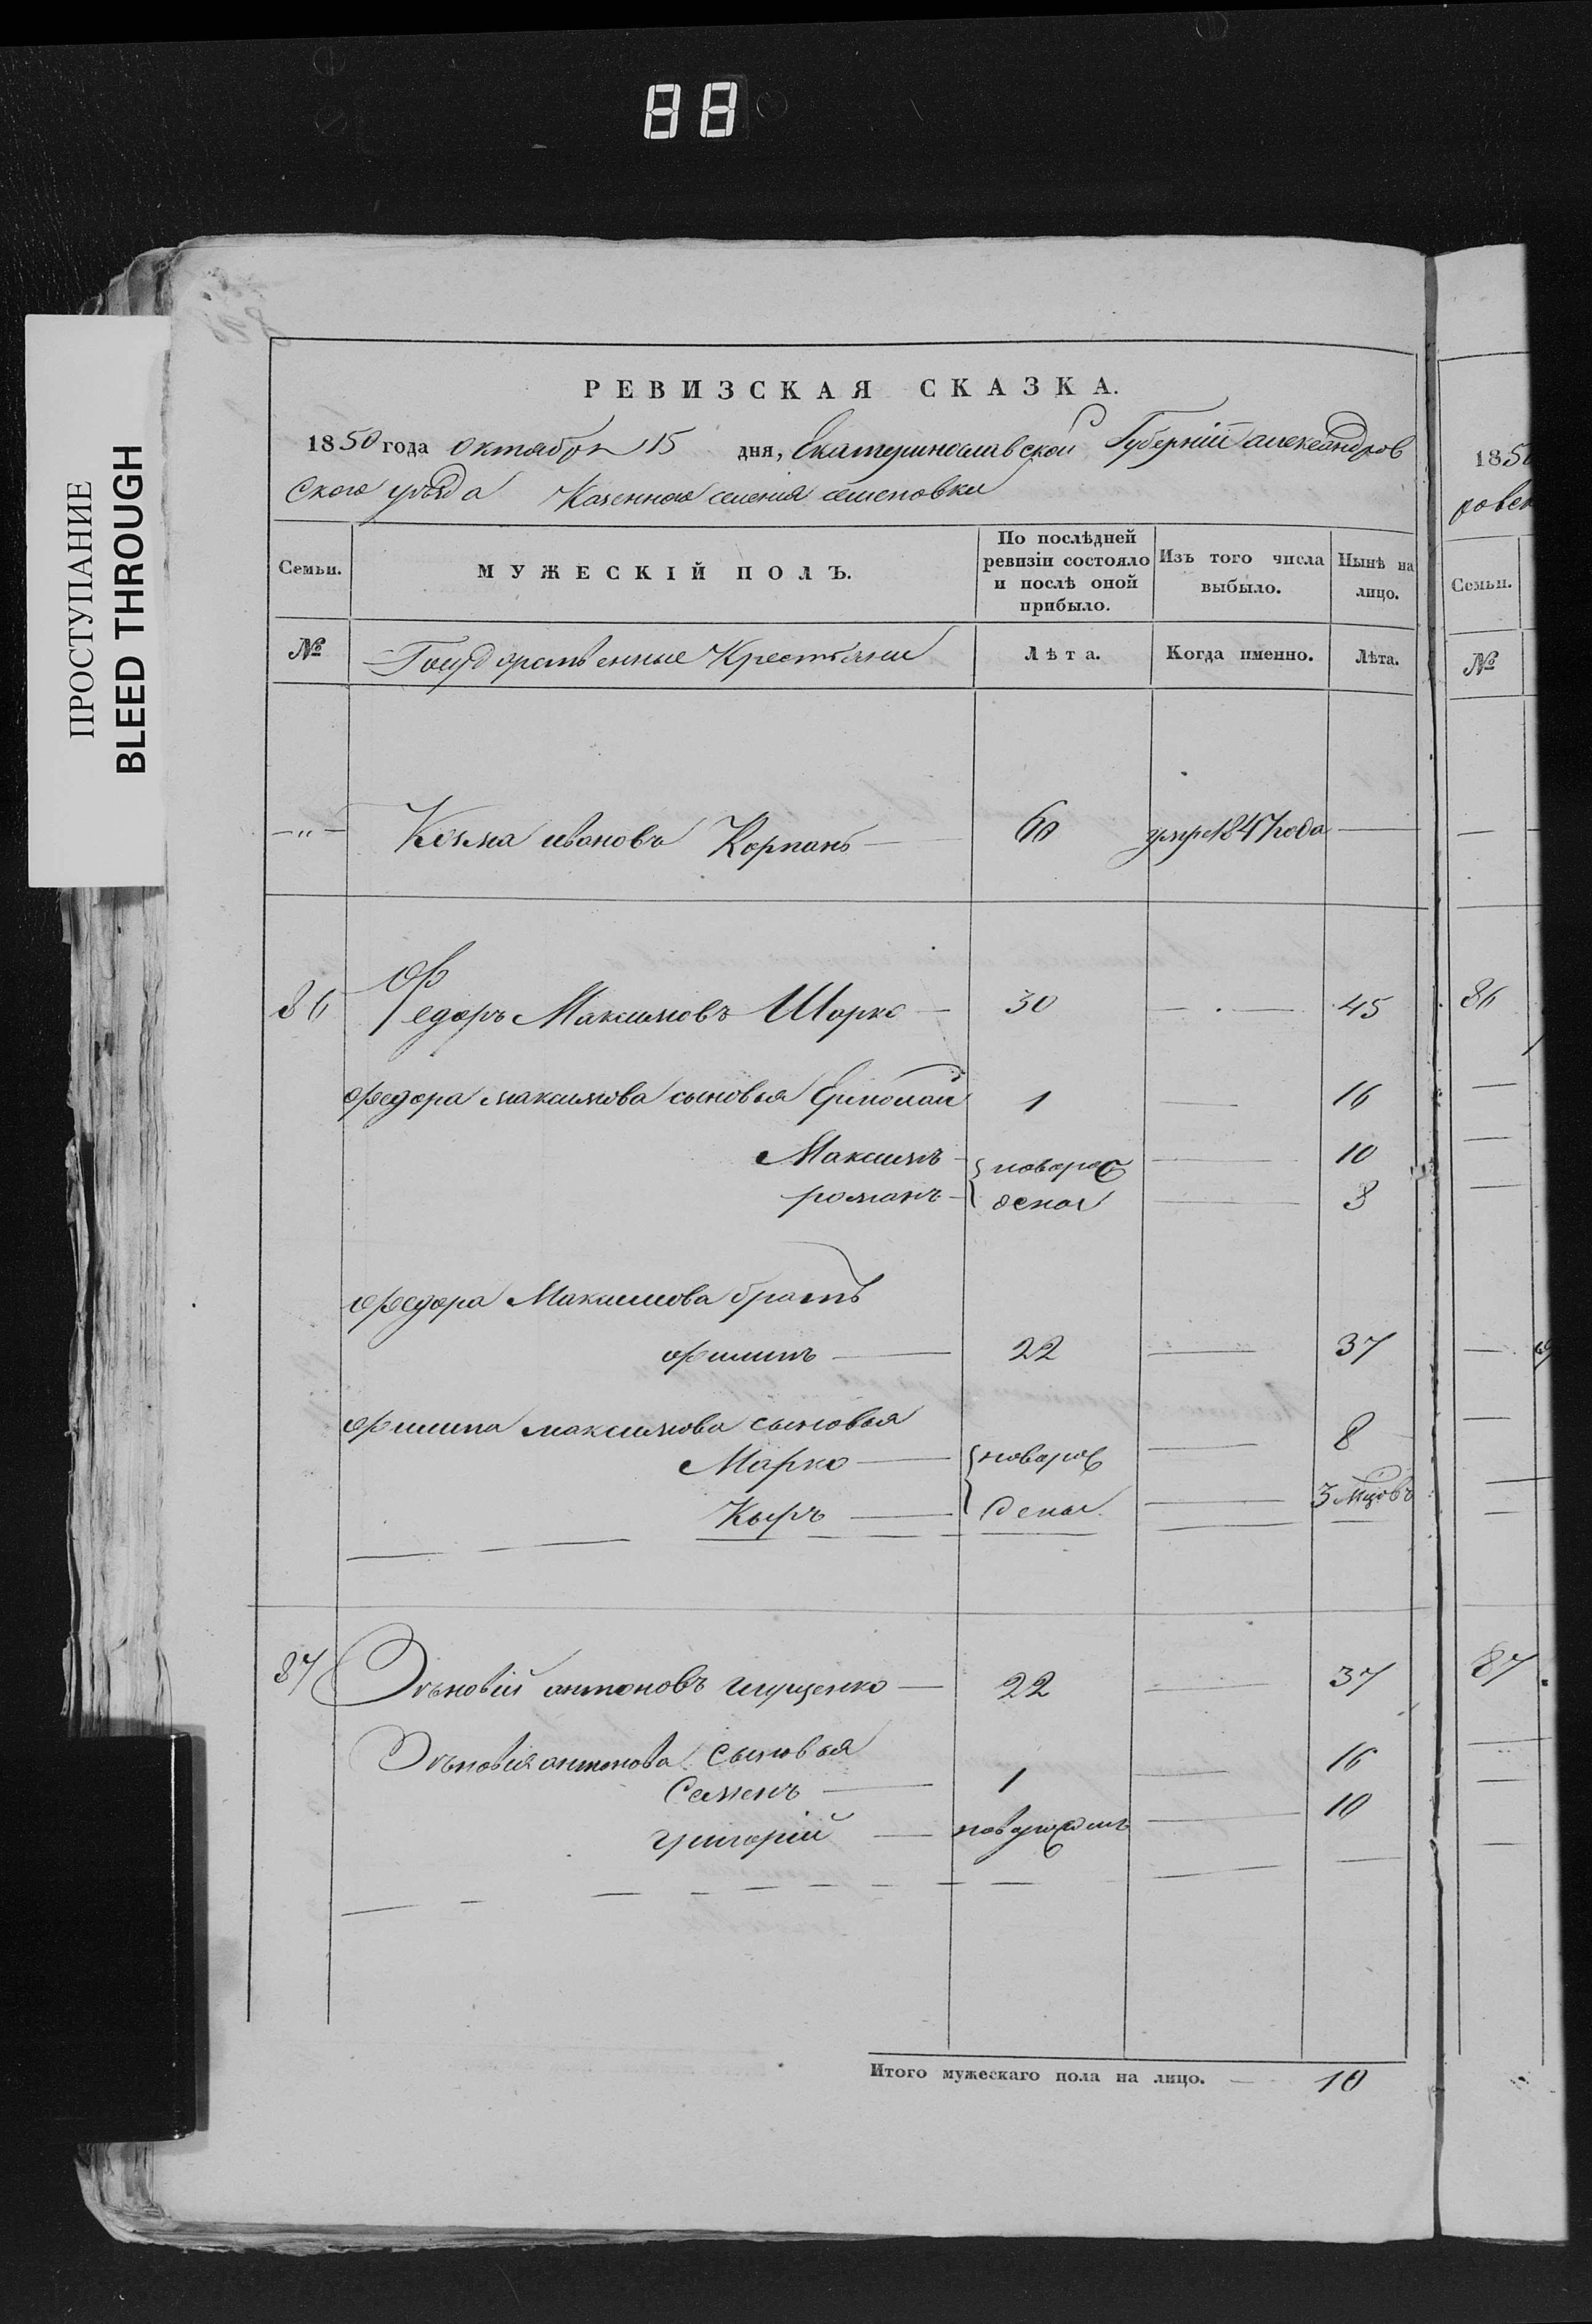 88
ПРОСТУПАНИЕ
BLEED THROUGH
РЕВИЗСКАЯ СКАЗКА.
1850 года октября 15 дня, Екатеринославской Губерніи александров
ского уѣзда Казенного селенія
Семьи. МУЖЕСКІЙ ПОЛЪ. По послѣдней ревизіи состояло и послѣ оной прибыло. Изъ того числа выбыло. Нынѣ на лицо.
№ Государственные Крестьяне Лѣта. Когда именно. Лѣта.
—„— Козма ивановъ Корпанъ — 60 умре 1847 года —
86 Федоръ Максимовъ Шорко — 30 — 45
Федора максимова сыновья 1 — 16
Максимъ - { новорож — 10
романъ - { денои — 8
Федора Максимова братъ
Филипъ — 22 — 37
Филипа максимова сыновья
Марко — { новорож — 8
Кыръ — { денои — 3 мцовъ
87 антоновъ — 22 — 37
антонова сыновья
Семенъ — 1 — 16
григорій — новорожденъ — 10
Итого мужескаго пола на лицо. — 10
1850
ровск
Семьи.
№
86
87